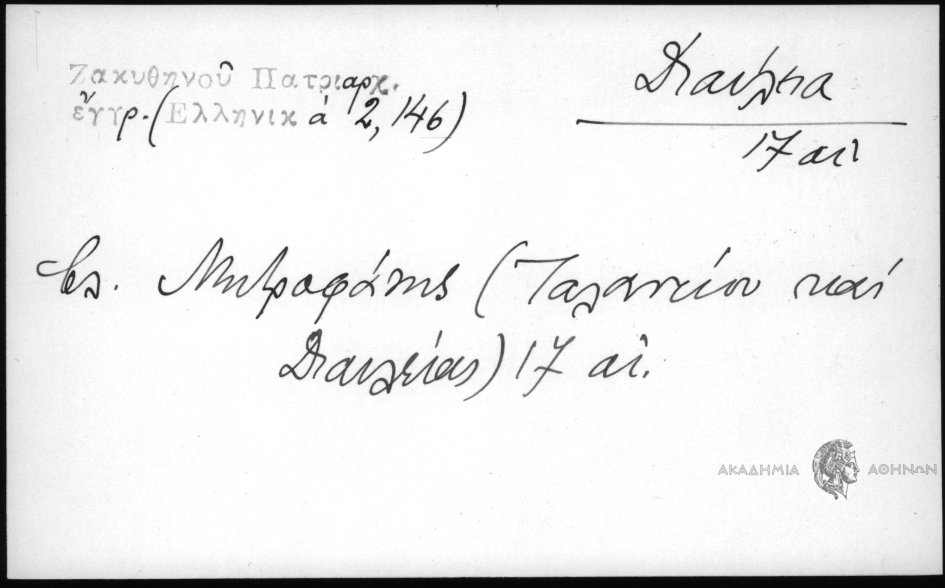 Ζακυθηνοῦ Πατριαρχ.
ἔγγρ. (Ἑλληνικά 2, 146)
Διαυλεια
17 αἰ
Ἐπ. Μητροφάνης (Ταλαντίου καί
Διαυλείας) 17 αἰ.
ΑΚΑΔΗΜΙΑ ΑΘΗΝΩΝ